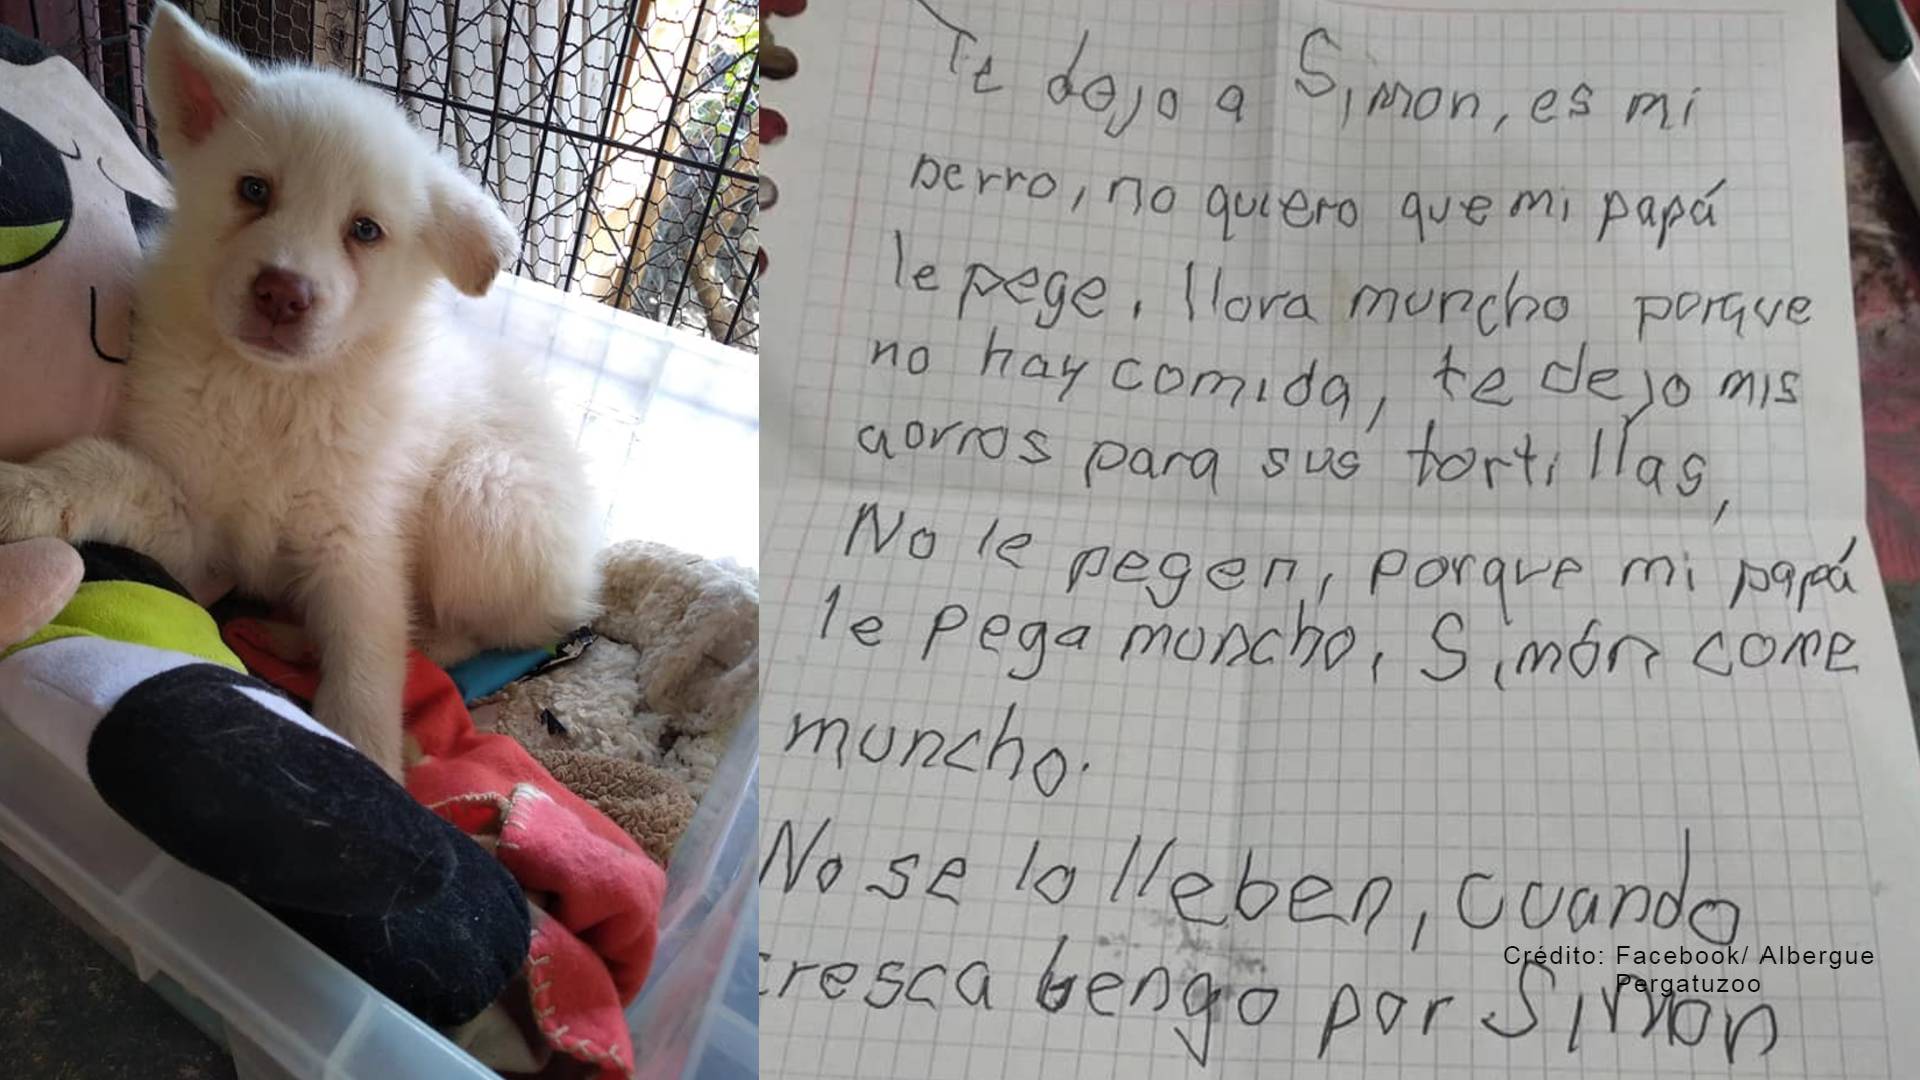 Te dejo a Simon, es mi
perro, no quiero que mi papá
le pege, llora muncho porque
no hay comida, te dejo mis
aorros para sus tortillas,
No le pegen, porque mi papá
le pega muncho, Simón come
muncho.
No se lo lleben, cuando
cresca bengo por Simon
Crédito: Facebook/ Albergue
Pergatuzoo